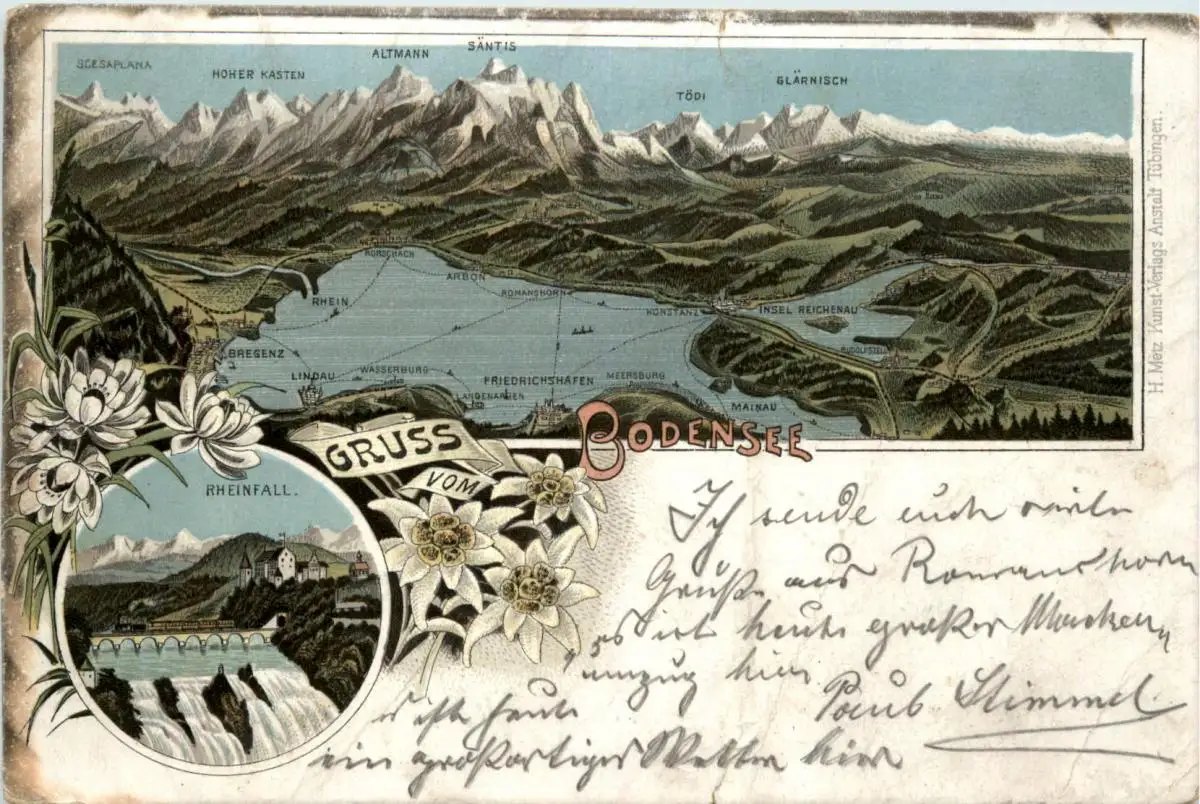 SCESAPLANA
HOHER KASTEN
ALTMANN
SÄNTIS
TÖDI
GLÄRNISCH
RORSCHACH
ARBON
RHEIN
ROMANSHORN
KONSTANZ
INSEL REICHENAU
RUDOLFSZELL
BREGENZ
LINDAU
WASSERBURG
LANGENARGEN
FRIEDRICHSHAFEN
MEERSBURG
MAINAU
GRUSS
VOM
BODENSEE
RHEINFALL.
H. Metz Kunst-Verlags Anstalt Tübingen.
Ich sende euch viele
Grüße aus Romanshorn
es ist heute großer Masken
umzug hier
Stimmel.
es ist heute
ein großartiges Wetter hier